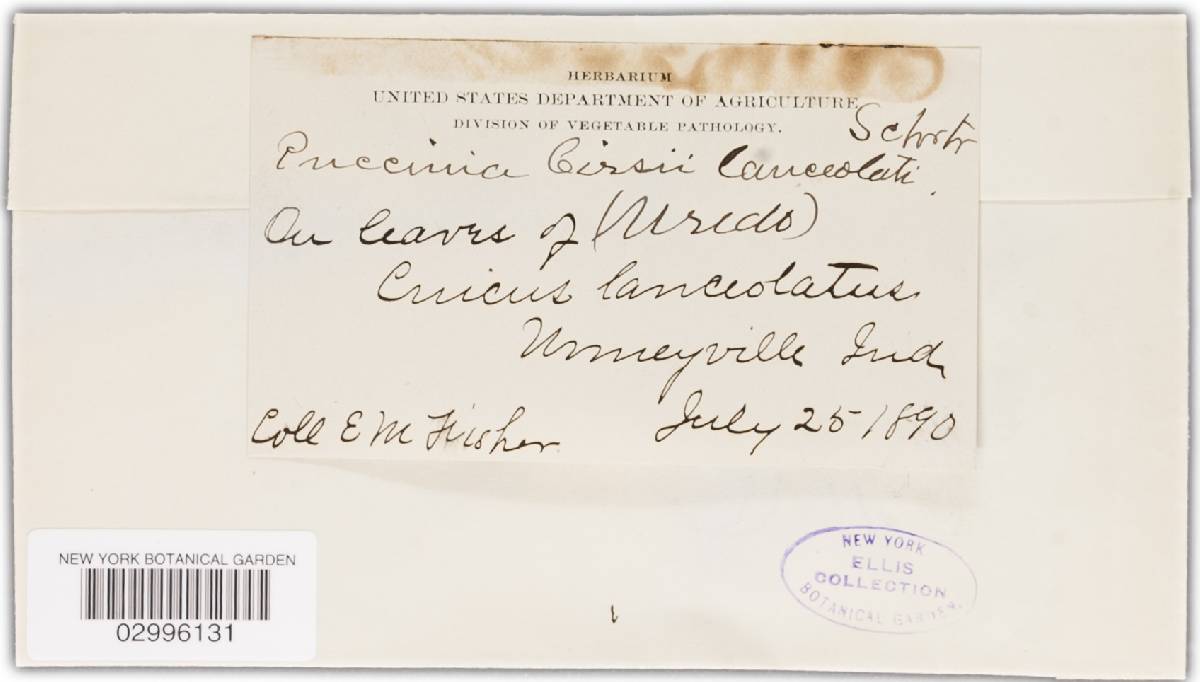 HERBARIUM
UNITED STATES DEPARTMENT OF AGRICULTURE
DIVISION OF VEGETABLE PATHOLOGY.
Puccinia Cirsii lanceolati Schrtr
On leaves of (Uredo)
Cnicus lanceolatus
Urmeyville Ind
Coll E M Fisher July 25 1890
NEW YORK BOTANICAL GARDEN
02996131
NEW YORK
ELLIS
COLLECTION
BOTANICAL GARDEN.